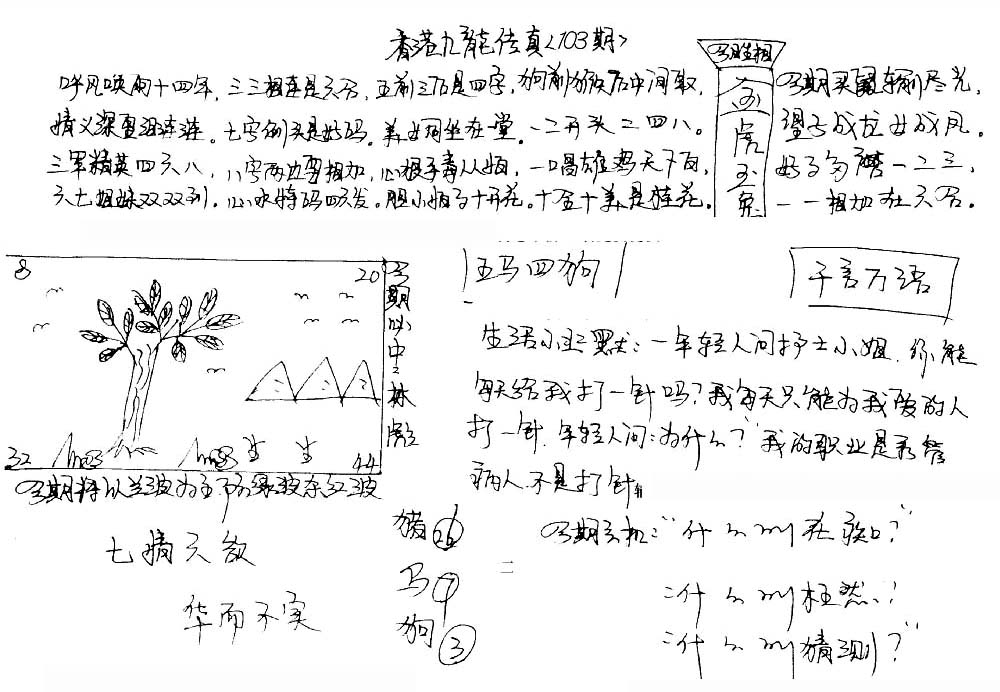 香港九龙传真<103期>
呼风唤雨十四年，三三相连是六合，五前三后是四字，狗前猴后中间取，
情义深重汹连连。七字倒头是好码。美女同坐在一堂。一二开头二四八。
三军精英四六八，八字两边要相加，一唱雄鸡天下白，
六七姐妹双双到。心水特码四六发。胆小十开花。十全十美是桂花。
马虎马兔
今期买尽光，
望子成龙女成凤。
好了一二三，
一一相加在六合。
8
20
32
44
今期必中：林
今期将以兰波为主防绿波杀红波
五马四狗
千言万语
生活小幽默：一年轻人问护士小姐，你能
每天给我打一针吗？我每天只能为我爱的人
打一针，年轻人问：为什么？我的职业是看管
病人，不是打针。
今期玄机："什么叫
什么叫枉然？
什么叫猜测？"
七情六欲
华而不实
猪
马 7
狗 3
二